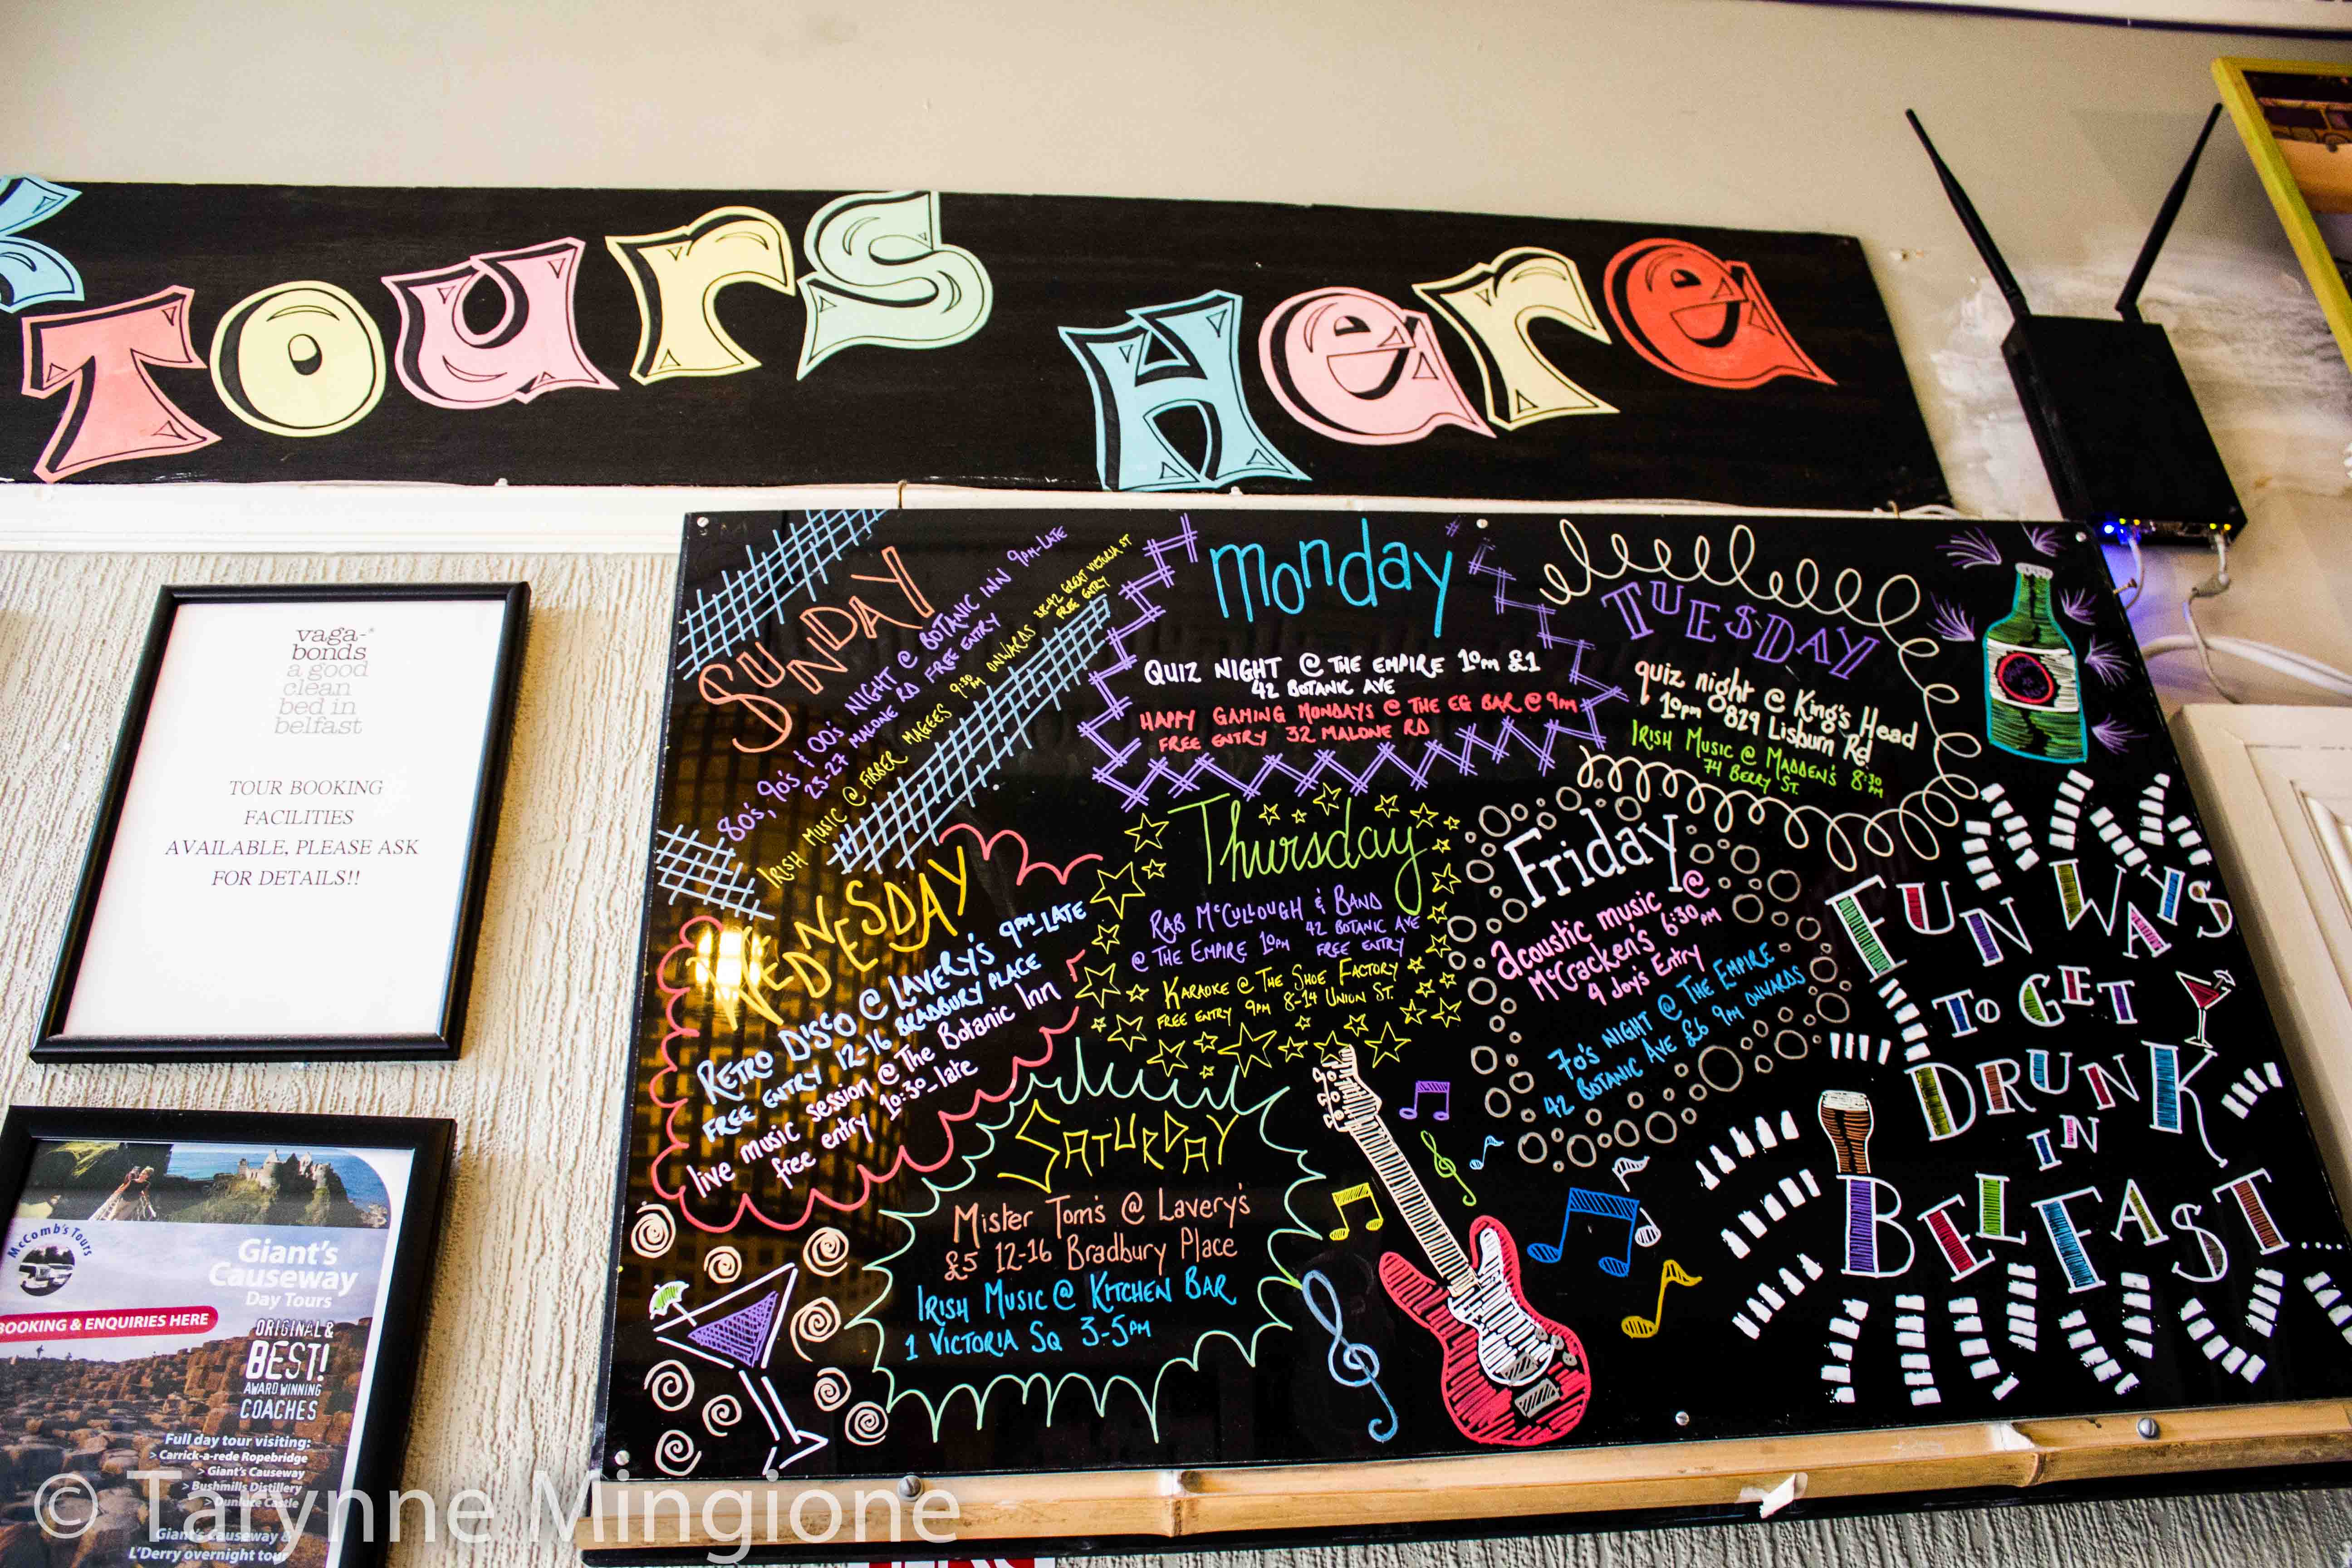 Tours Here
vaga-
bonds
a good
clean
bed in
belfast
TOUR BOOKING
FACILITIES
AVAILABLE, PLEASE ASK
FOR DETAILS!!
McComb's Tours
Giant's
Causeway
Day Tours
BOOKING & ENQUIRIES HERE
ORIGINAL &
BEST!
AWARD WINNING
COACHES
Full day tour visiting:
> Carrick-a-rede Ropebridge
> Giant's Causeway
> Bushmills Distillery
> Dunluce Castle
Giant's Causeway &
L'Derry overnight tour
SUNDAY
80's, 90's & 00's NIGHT @ BOTANIC INN 9PM-LATE
23-27 MALONE RD FREE ENTRY
IRISH MUSIC @ FIBBER MAGEES 9:30 PM ONWARDS 38-42 GREAT VICTORIA ST
FREE ENTRY
monday
QUIZ NIGHT @ THE EMPIRE 10pm £1
42 BOTANIC AVE
HAPPY GAMING MONDAYS @ THE EG BAR @ 9PM
FREE ENTRY 32 MALONE RD
TUESDAY
quiz night @ King's Head
10pm 829 Lisburn Rd
IRISH MUSIC @ MADDEN'S 8:30 PM
74 BERRY ST.
WEDNESDAY
RETRO DISCO @ LAVERY'S 9PM-LATE
FREE ENTRY 12-16 BRADBURY PLACE
live music session @ The Botanic Inn
free entry 10:30-late
Thursday
RAB McCULLOUGH & BAND
@ THE EMPIRE 10PM 42 BOTANIC AVE
FREE ENTRY
KARAOKE @ THE SHOE FACTORY
FREE ENTRY 9PM 8-14 UNION ST.
Friday
acoustic music @
McCracken's 6:30PM
4 Joy's Entry
70's NIGHT @ THE EMPIRE
42 BOTANIC AVE £6 9PM ONWARDS
SATURDAY
Mister Tom's @ Lavery's
£5 12-16 Bradbury Place
IRISH MUSIC @ KITCHEN BAR
1 VICTORIA SQ 3-5PM
FUN WAYS
TO GET
DRUNK
IN
BELFAST....
© Tarynne Mingione